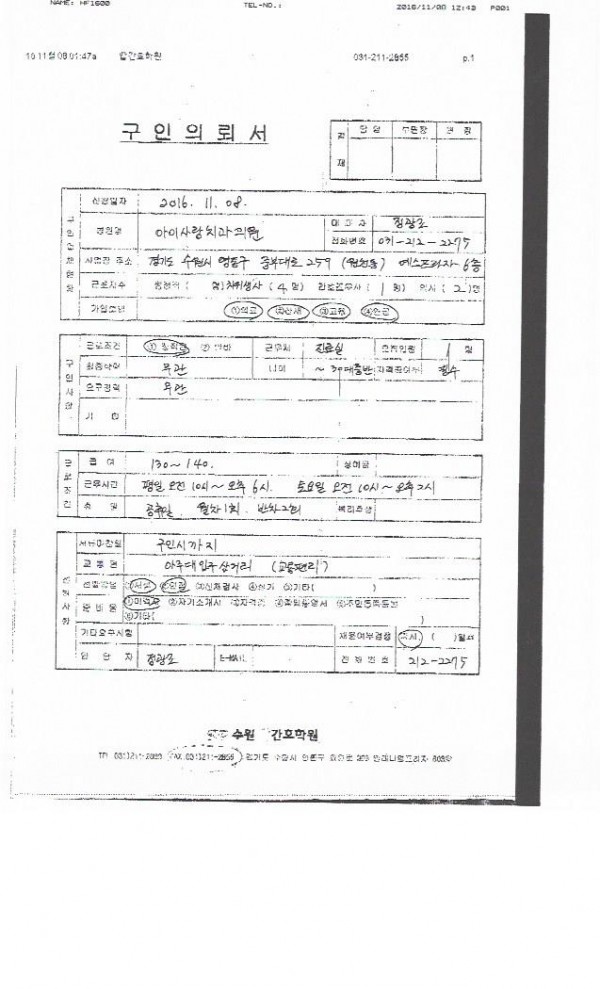 NAME: HF1600 TEL-NO.: 2016/11/08 12:43 P001
16 11월 08 01:47a 간호학원 031-211-2855 p.1
구 인 의 뢰 서
결 재 담 당 부원장 원 장
구인업체현황
신청일자 2016. 11. 08.
병원명 아이사랑치과의원 대 표 자 정광조
전화번호 031-212-2275
사업장 주소 경기도 수원시 영통구 중부대로 259 (원천동) 에스프라자 6층
근로자수 명) 치위생사 ( 4 명) 간호조무사 ( 1 명) 의사 ( 2 )명
가입보험 ①의료 ②산재 ③고용 ④연금
구인사항
근로조건 ① ② 근무처 진료실 1 명
최종학력 무관 나이 ~ 30대중반 자격증여부 필수
요구경력 무관
기 타
근로조건
급 여 130~140. 상여금
근무시간 평일 오전 10시~오후 6시. 토요일 오전 10시~오후 2시
휴 일 공휴일. 월차1회.
서류마감일 구인시까지
교 통 편 아주대입구삼거리 (교통편리)
전형방법 ①서류 ②면접 ③신체검사 ④실기 ⑤기타( )
①이력서 ②자기소개서 ③자격증 ⑤주민등록등본
⑥기타( )
기타요구사항 채용여부결정 즉시 ( )
담 당 자 정광조 E-MAIL 전 화 번 호 212-2275
수원 간호학원
FAX. 031)211-2855 경기도 수원시